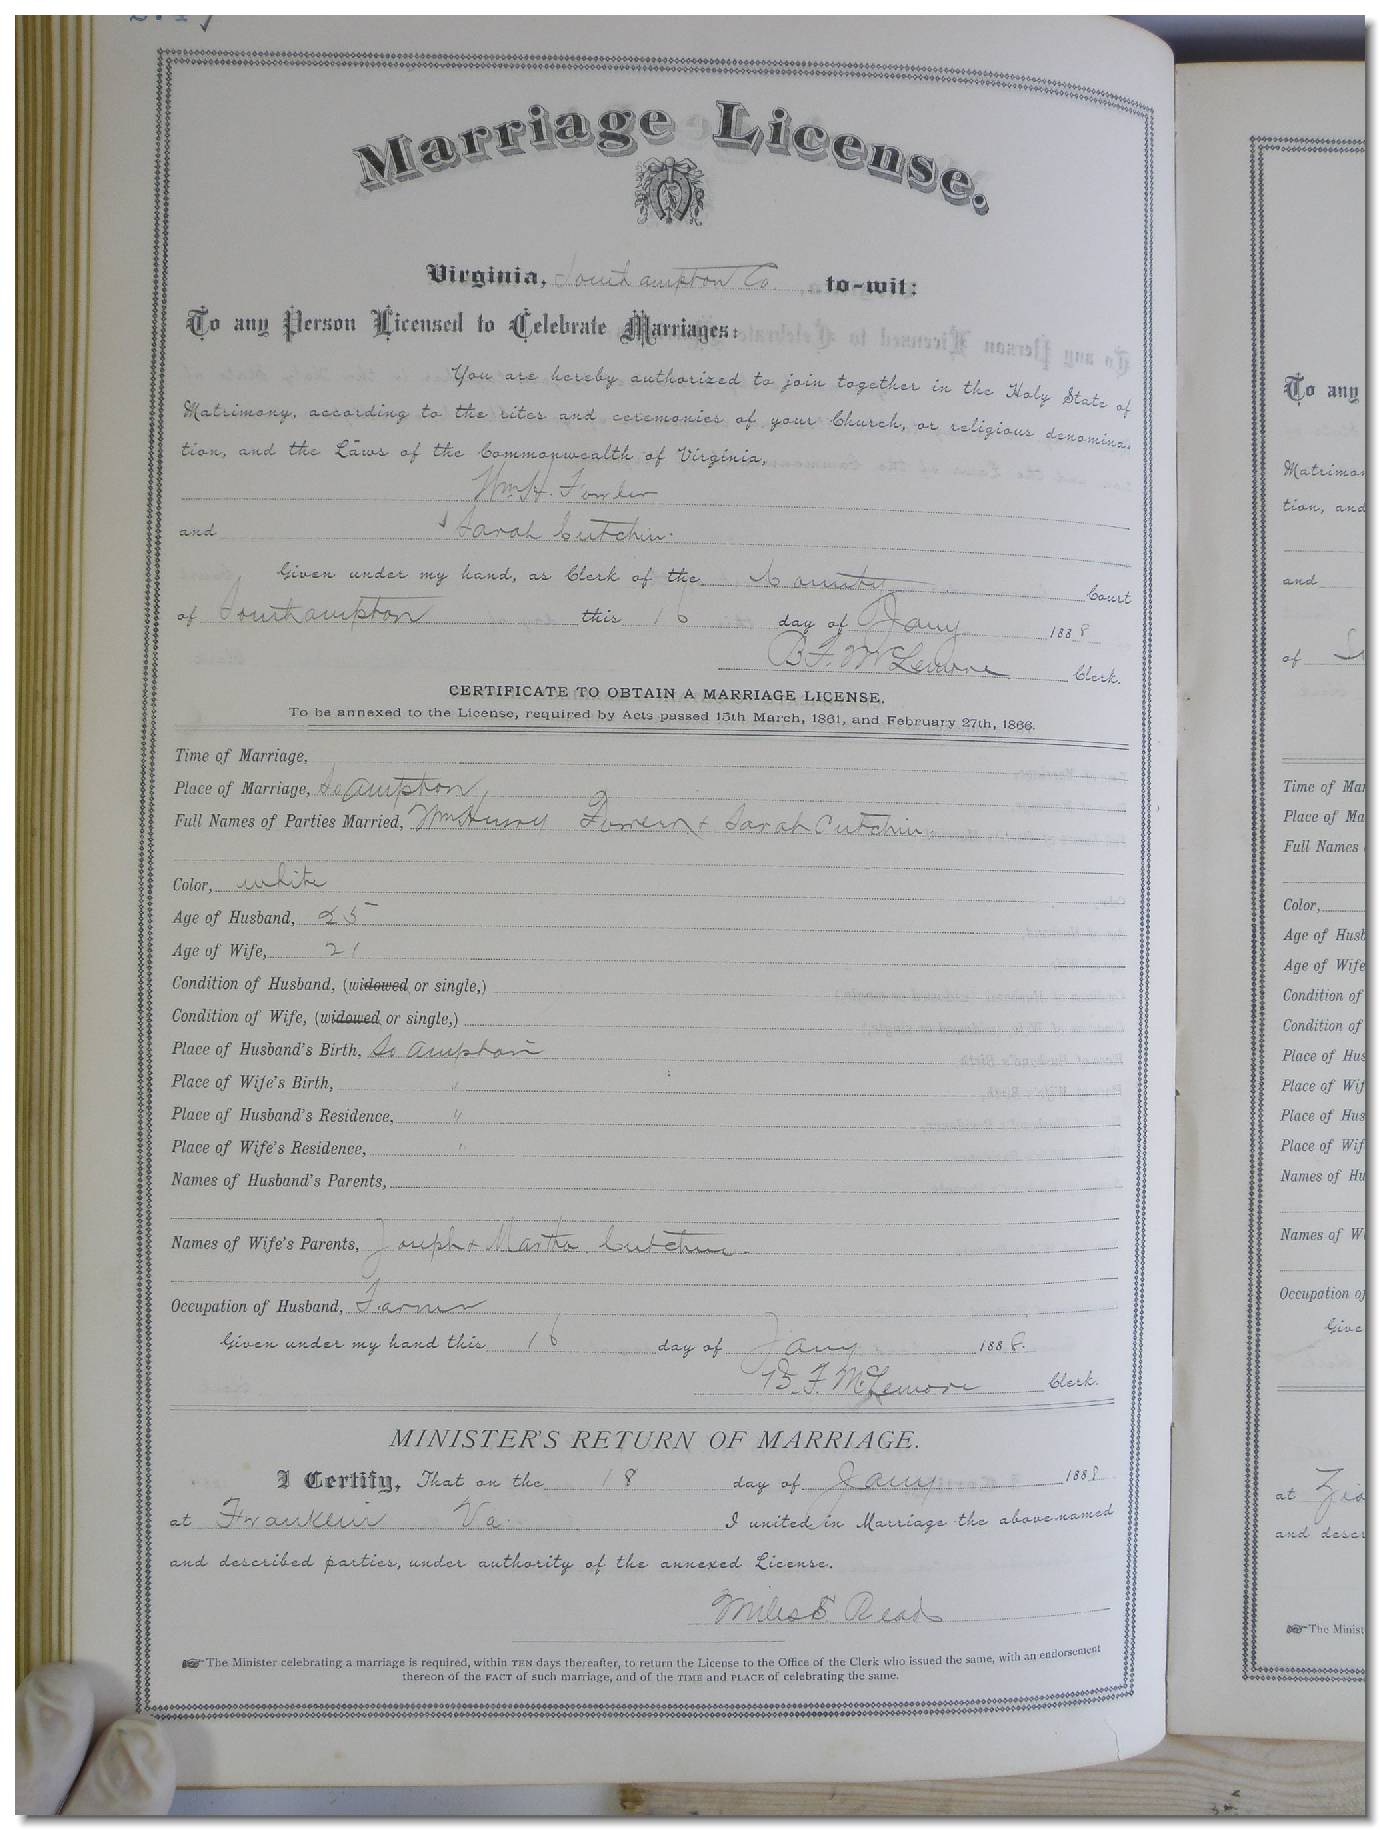 Marriage License.
Virginia, Southampton Co. to-wit:
To any Person Licensed to Celebrate Marriages:
You are hereby authorized to join together in the Holy State of
Matrimony, according to the rites and ceremonies of your Church, or religious denomina-
tion, and the Laws of the Commonwealth of Virginia,
Wm H. Fowler
and Sarah Cutchin
Given under my hand, as Clerk of the County Court
of Southampton this 16 day of Jany 1888
B. F. McLemore Clerk.
CERTIFICATE TO OBTAIN A MARRIAGE LICENSE.
To be annexed to the License, required by Acts passed 15th March, 1861, and February 27th, 1866.
Time of Marriage,
Place of Marriage, So ampton
Full Names of Parties Married, Wm Henry Fowler + Sarah Cutchin
Color, white
Age of Husband, 25
Age of Wife, 21
Condition of Husband, (widowed or single,)
Condition of Wife, (widowed or single,)
Place of Husband's Birth, So ampton
Place of Wife's Birth, "
Place of Husband's Residence, "
Place of Wife's Residence, "
Names of Husband's Parents,
Names of Wife's Parents, Joseph + Martha Cutchin
Occupation of Husband, Farmer
Given under my hand this 16 day of Jany 1888.
B. F. McLemore Clerk.
MINISTER'S RETURN OF MARRIAGE.
I Certify, That on the 18 day of Jany 1888
at Franklin Va. I united in Marriage the above-named
and described parties, under authority of the annexed License.
Miles S. Reads
☞ The Minister celebrating a marriage is required, within TEN days thereafter, to return the License to the Office of the Clerk who issued the same, with an endorsement
thereon of the FACT of such marriage, and of the TIME and PLACE of celebrating the same.
To any
Matrimo
tion, and
and
of
Time of Ma
Place of Ma
Full Names
Color,
Age of Husb
Age of Wife
Condition of
Condition of
Place of Hus
Place of Wif
Place of Hus
Place of Wif
Names of Hu
Names of W
Occupation o
Give
at
and descr
☞ The Minist